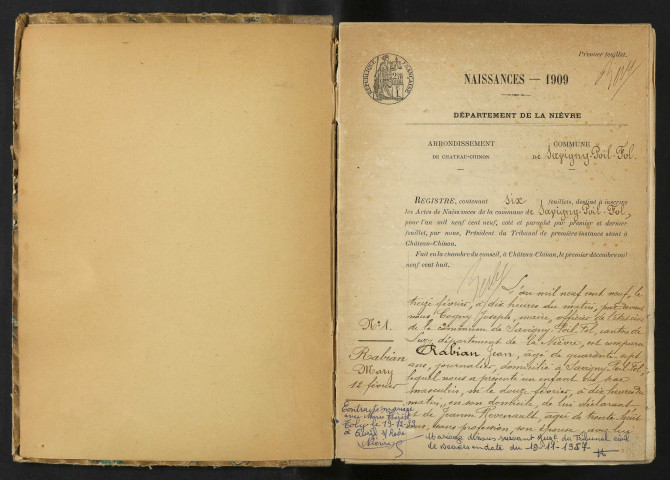 Premier feuillet.
RÉPUBLIQUE FRANÇAISE
NAISSANCES — 1909
DÉPARTEMENT DE LA NIÈVRE
ARRONDISSEMENT
DE CHATEAU-CHINON
COMMUNE
DE Savigny-Poil-Fol.
REGISTRE, contenant six feuillets, destiné à inscrire
les Actes de Naissances de la commune de Savigny-Poil-Fol,
pour l'an mil neuf cent neuf, coté et paraphé par premier et dernier
feuillet, par nous, Président du Tribunal de première instance séant à
Château-Chinon.
Fait en la chambre du conseil, à Château-Chinon, le premier décembre mil
neuf cent huit.
N° 1.
Rabian
Mary
12 février
L'an mil neuf cent neuf, le
treize février, à dix heures du matin, par devant
nous Cogny Joseph, maire, officier de l'état civil
de la commune de Savigny-Poil-Fol, canton de
Luzy, département de la Nièvre, est comparu
Rabian Jean, âgé de quarante sept
ans, journalier, domicilié à Savigny-Poil-Fol,
lequel nous a présenté un enfant du sexe
masculin, né le douze février, à dix heures du
matin, en son domicile, de lui déclarant
et de Jeanne Revenault, âgée de trente huit
ans, sans profession, son épouse, avec lui
Contracte mariage
avec
le 19-12-32
Mariage dissous suivant Jugt du Tribunal civil
de en date du 19-11-1957